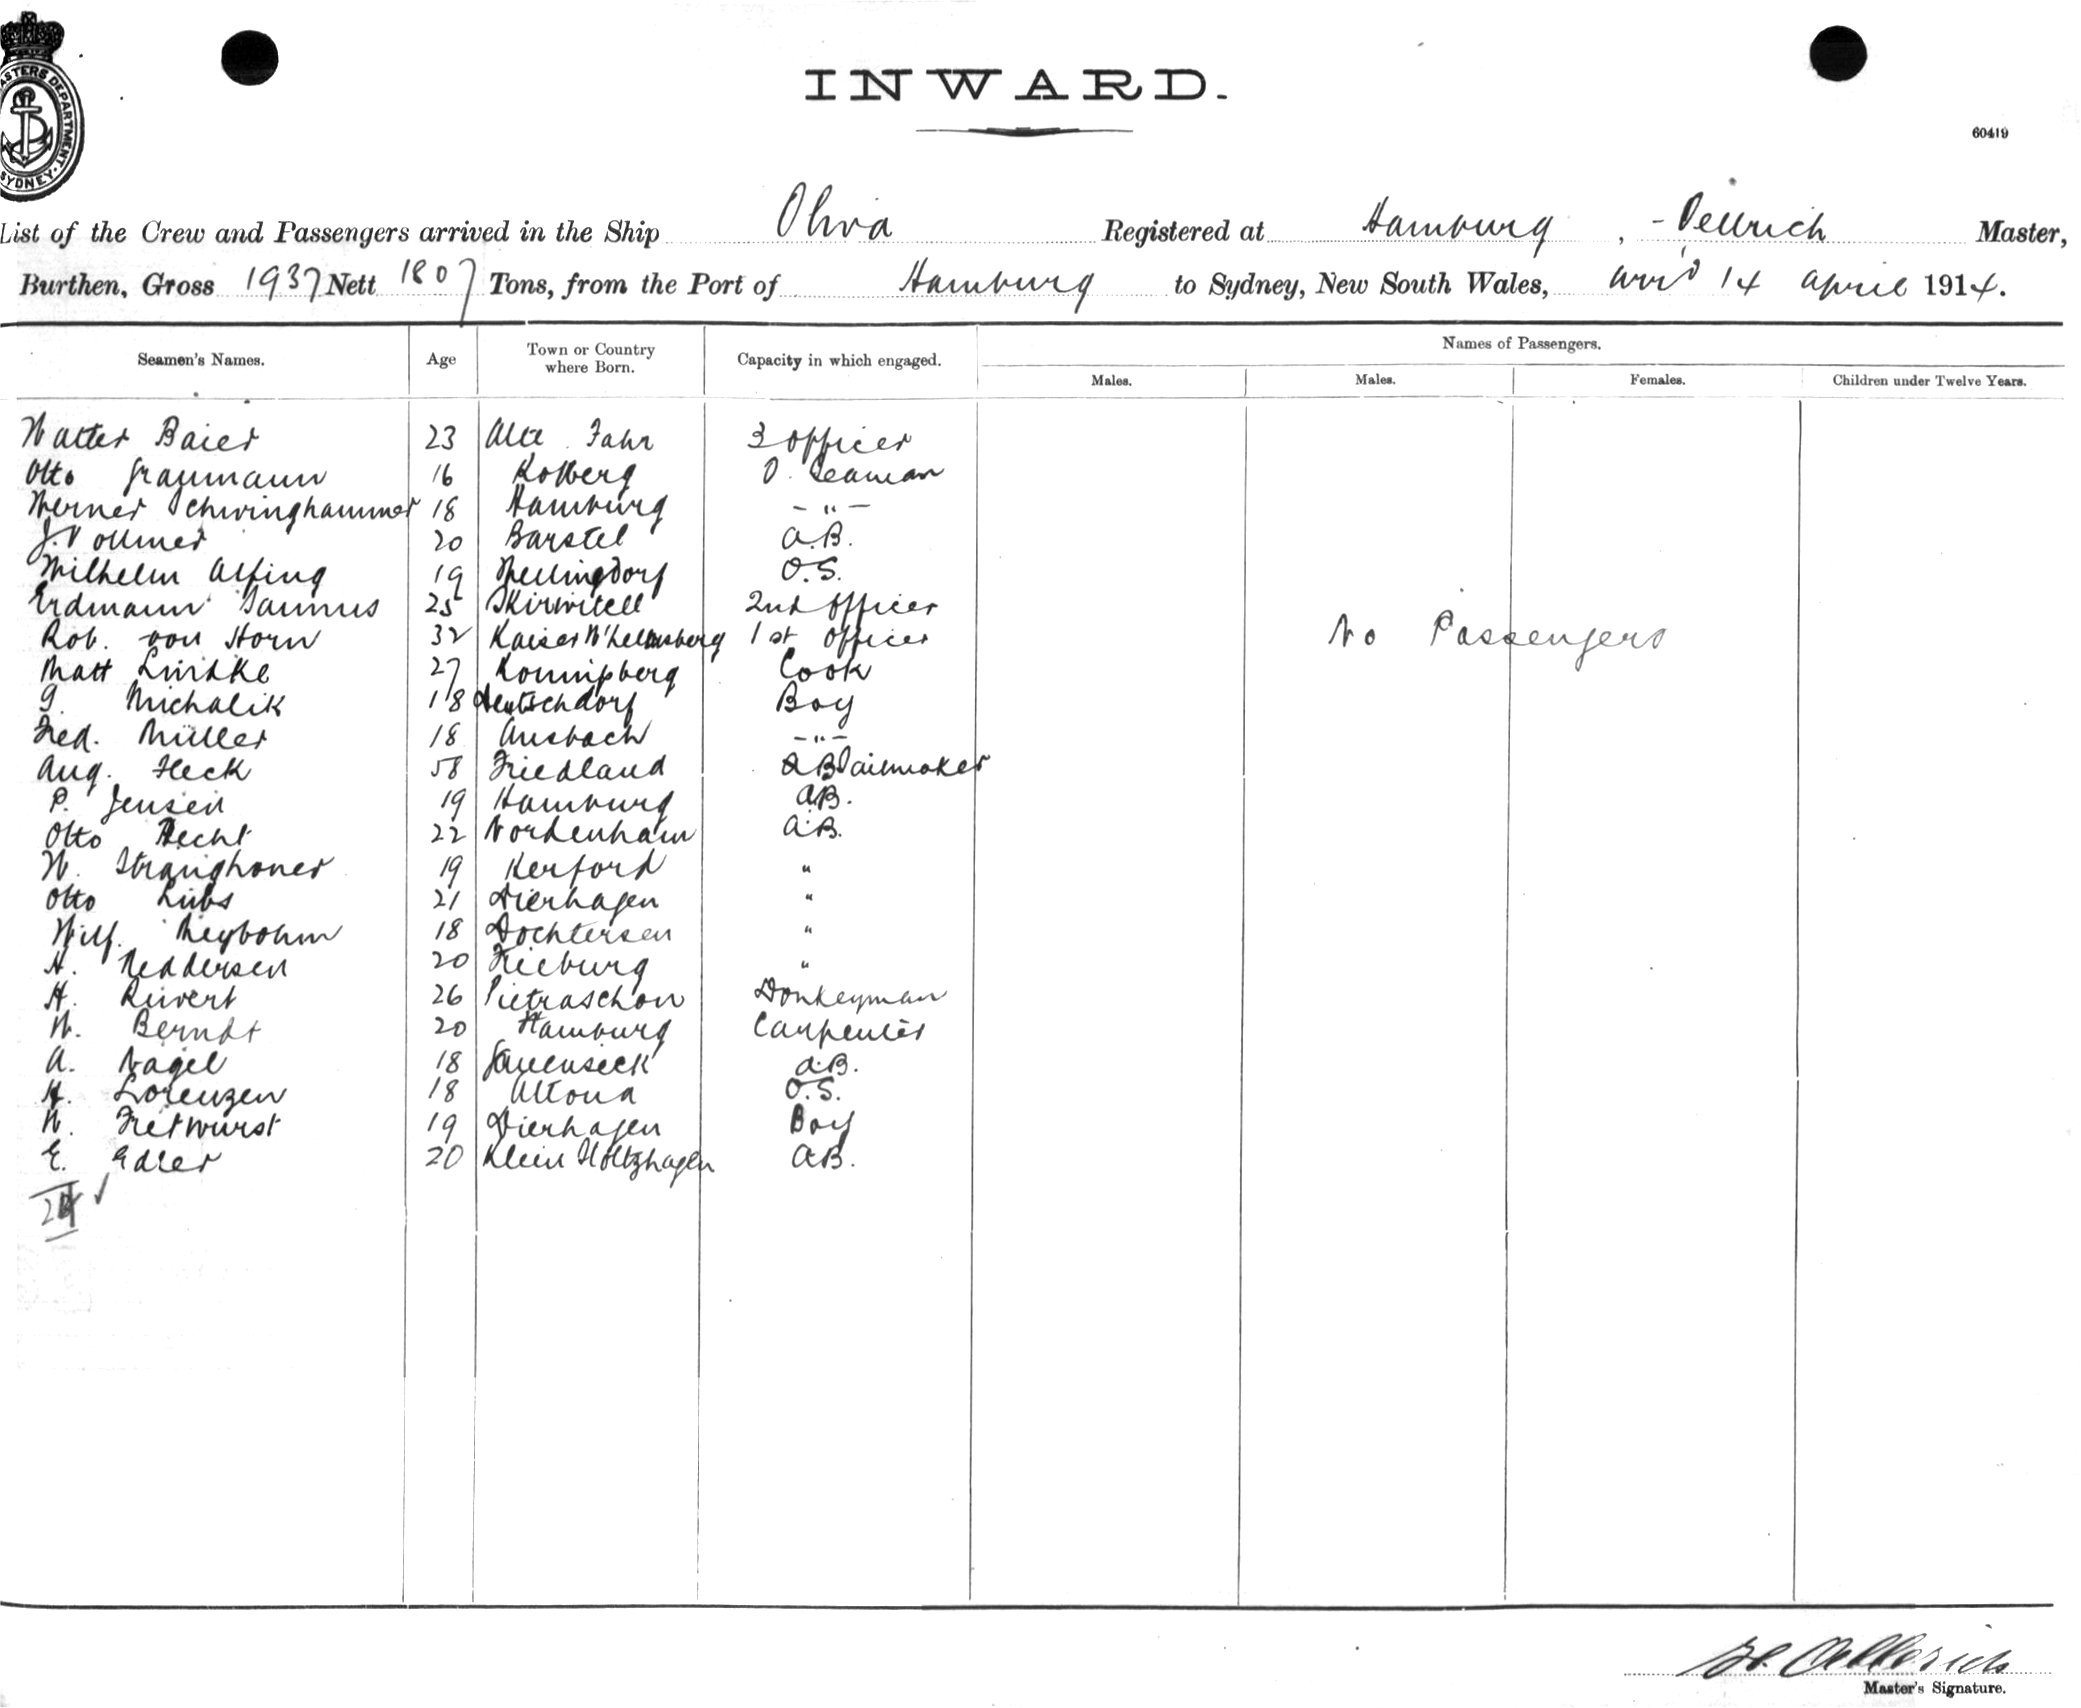 MASTERS DEPARTMENT. SYDNEY.
INWARD.
60419
List of the Crew and Passengers arrived in the Ship Oliva Registered at Hamburg, - Oellrich Master,
Burthen, Gross 1937 Nett 1807 Tons, from the Port of Hamburg to Sydney, New South Wales, arrd 14 April 1914.
Seamen's Names. Age Town or Country where Born. Capacity in which engaged. Names of Passengers.
Males. Males. Females. Children under Twelve Years.
Walter Baier 23 Alte Fahr 3 officer
Otto Graumann 16 Kolberg O. Seaman
Werner Schwinghammer 18 Hamburg -"-
J. Vollmer 20 Barstel A.B.
Wilhelm Alfing 19 O.S.
Erdmann 25 Skirwitell 2nd officer
Rob. von Horn 32 Kaiser W'helmsberg 1st officer
No Passengers
Matt Lindke 27 Cook
G. Michalik 18 Deutschdorf Boy
Fred. Müller 18 Ansbach -"-
Aug. Fleck 58 Friedland AB Sailmaker
P. Jensen 19 Hamburg AB.
Otto Hecht 22 Nordenham A.B.
W. Stranghoner 19 Herford "
Otto Lübs 21 Dierhagen "
Wilh. Meybohm 18 Dochtersen "
H. Neddersen 20 Freiburg "
H. Rüvert 26 Pietraschon Donkeyman
W. Berndt 20 Hamburg Carpenter
A. Nagel 18 Sauensieck A.B.
H. Lorenzen 18 Altona O.S.
W. Fretwurst 19 Dierhagen Boy
E. Edler 20 Klein Holtzhagen AB.
Master's Signature.